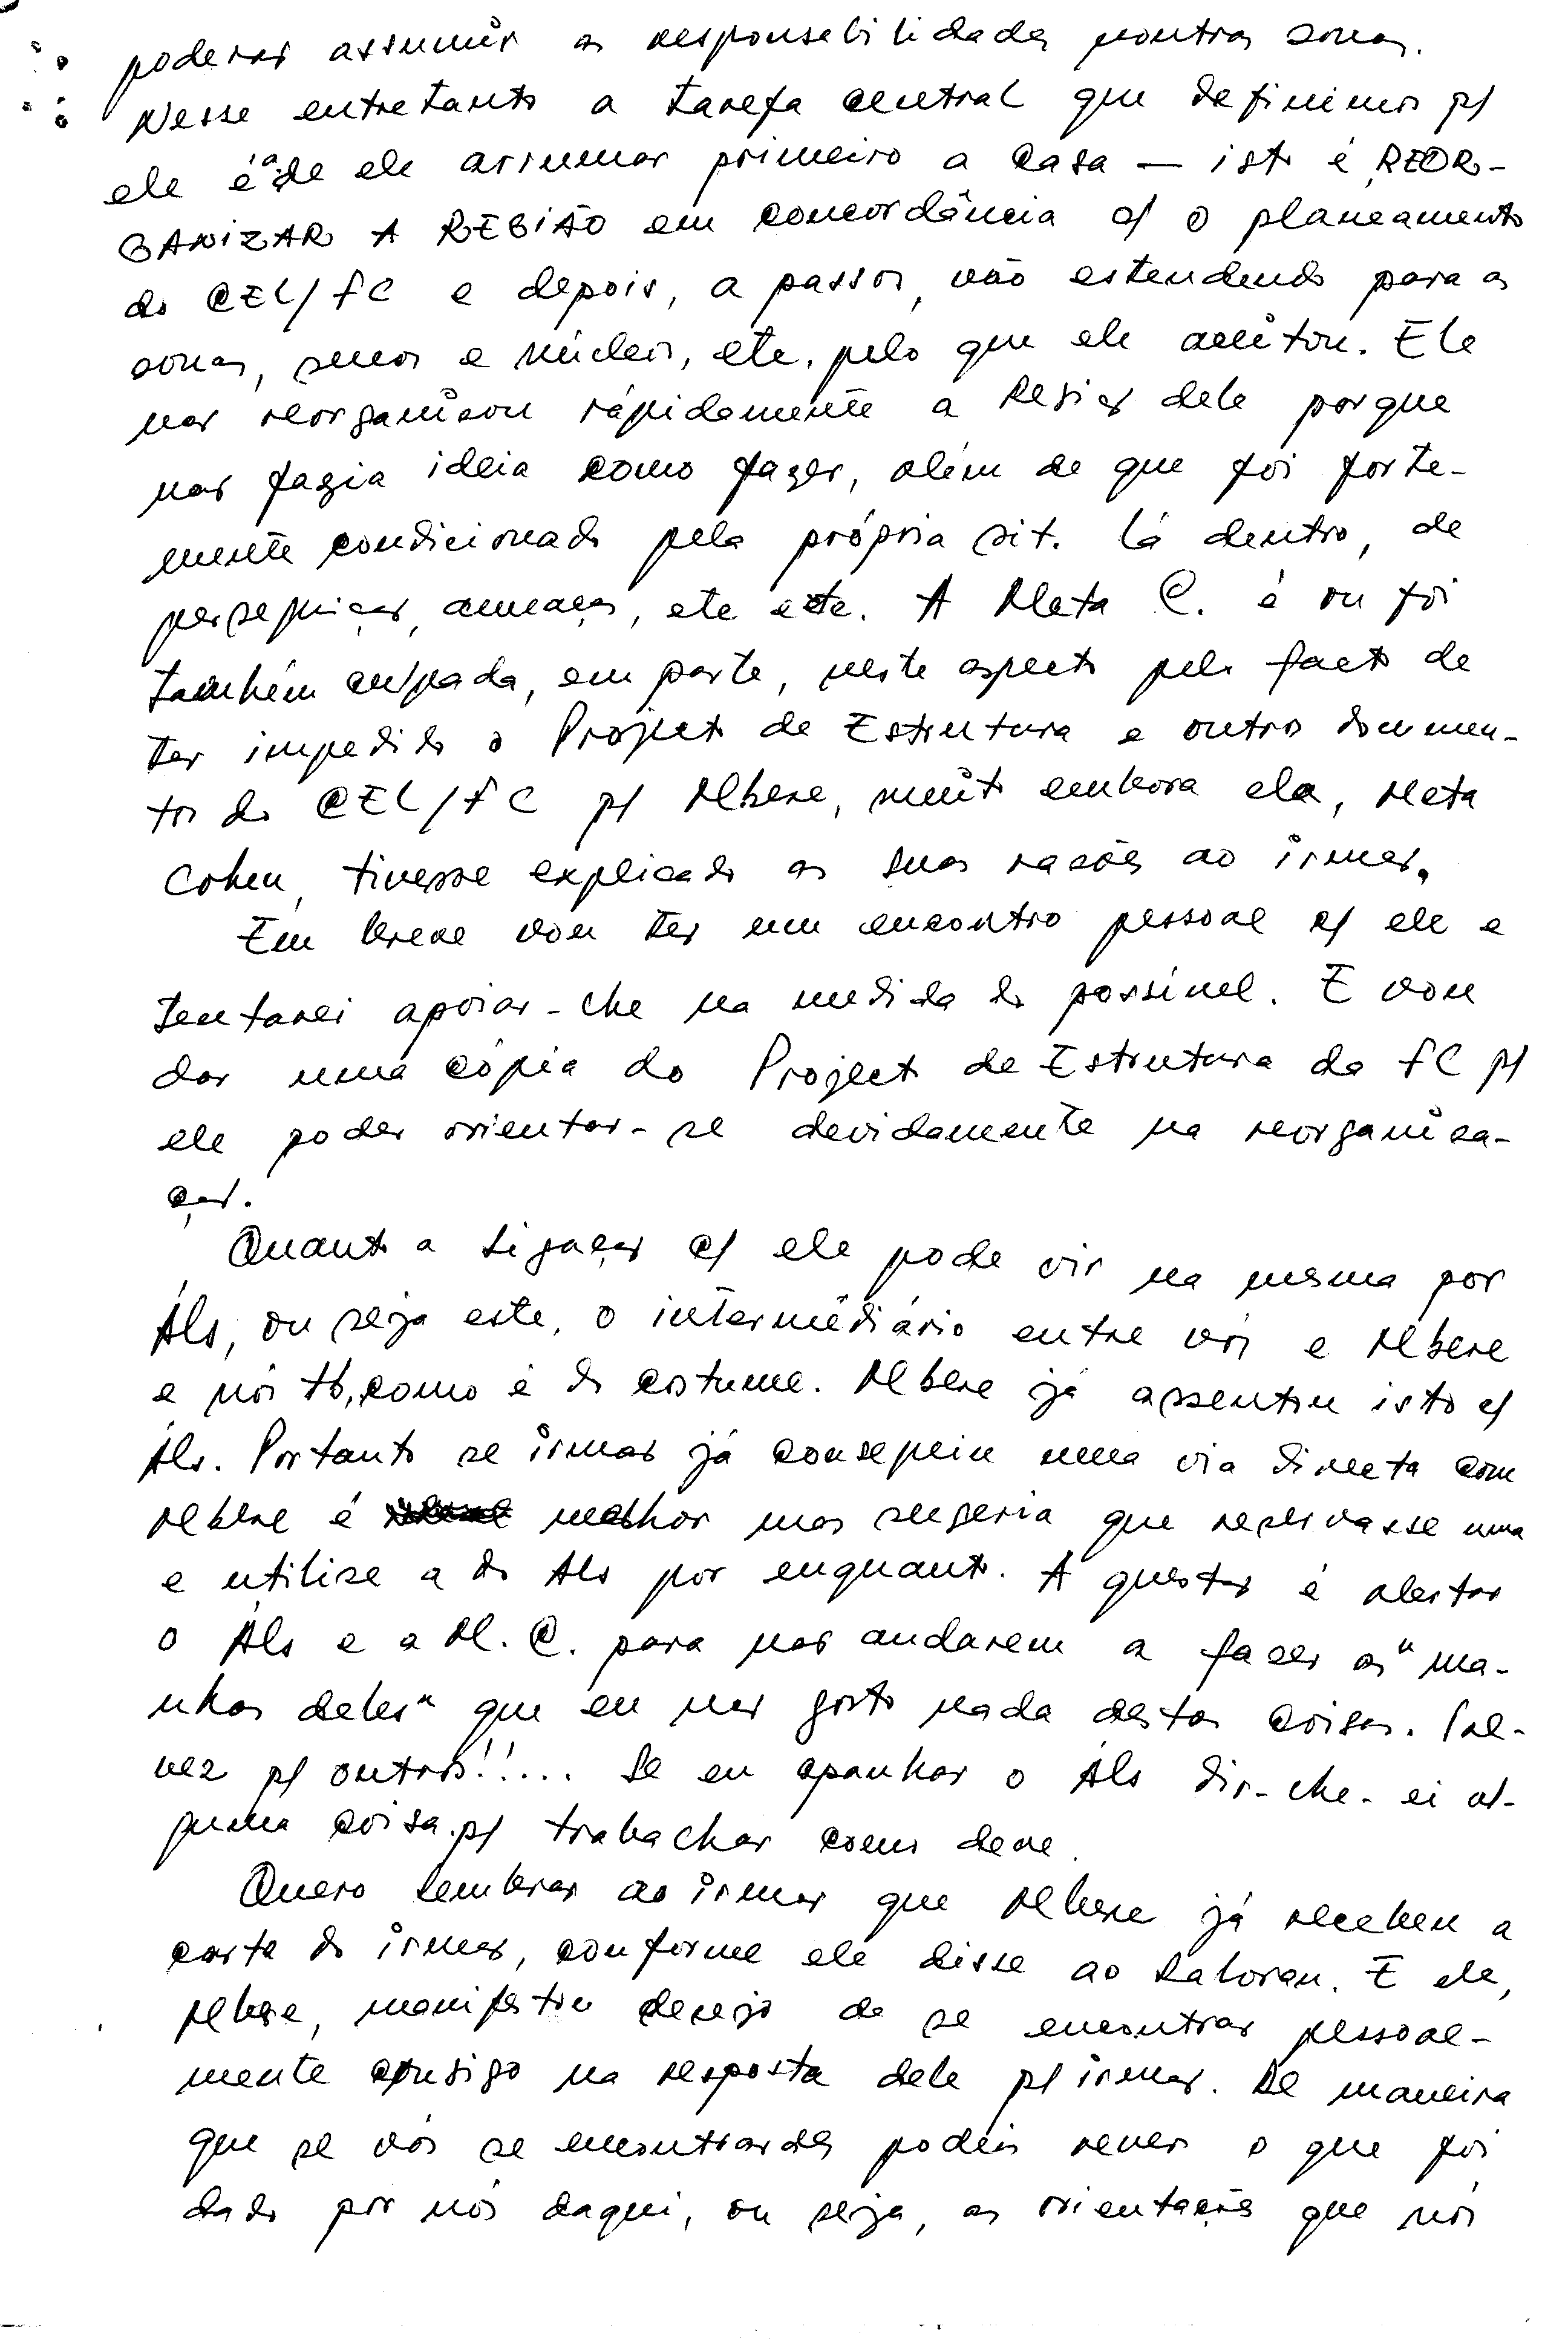 poderás assumir as responsabilidades noutras zonas.
Nesse entretanto a tarefa central que definimos p/
ele é a de ele arrumar primeiro a casa — isto é REOR-
GANIZAR A REGIÃO em concordância c/ o planeamento
do CEL/FC e depois, a passos, vão estendendo para as
zonas, sucos e núcleos, etc. pelo que ele aceitou. Ele
não reorganizou rápidamente a Região dele porque
não fazia ideia como fazer, além de que foi forte-
mente condicionado pela própria sit. lá dentro, de
perseguição, ameaças, etc etc. A Meta C. é ou foi
também culpada, em parte, neste aspecto pelo facto de
ter impedido o Projecto de Estrutura e outros documen-
tos do CEL/FC p/ Mbere, muito embora ela, Meta
Cohen, tivesse explicado as suas razões ao irmão.
Em breve vou ter um encontro pessoal c/ ele e
tentarei apoiar-lhe na medida do possível. E vou
dar uma cópia do Projecto de Estrutura da FC p/
ele poder orientar-se devidamente na reorganiza-
ção.
Quanto a ligação c/ ele pode vir na mesma por
Áls, ou seja este, o intermédiário entre vós e Mbere
e nós tb, como é do costume. Mbere já assentou isto c/
Áls. Portanto se irmão já conseguiu uma via directa com
Mbere é melhor mas sugeria que reservasse uma
e utilize a do Áls por enquanto. A questão é alertar
o Áls e a M. C. para não andarem a fazer as "ma-
nhas deles" que eu não gosto nada destas coisas. Tal-
vez p/ outros!!... Se eu apanhar o Áls dir-lhe-ei al-
guma coisa p/ trabalhar como deve.
Quero lembrar ao irmão que Mbere já recebeu a
carta do irmão, conforme ele disse ao Saloran. E ele,
Mbere, manifestou desejo de se encontrar pessoal-
mente consigo na resposta dele p/ irmão. De maneira
que se vós se encontrardes podeis rever o que foi
dado por nós daqui, ou seja, as orientações que nós